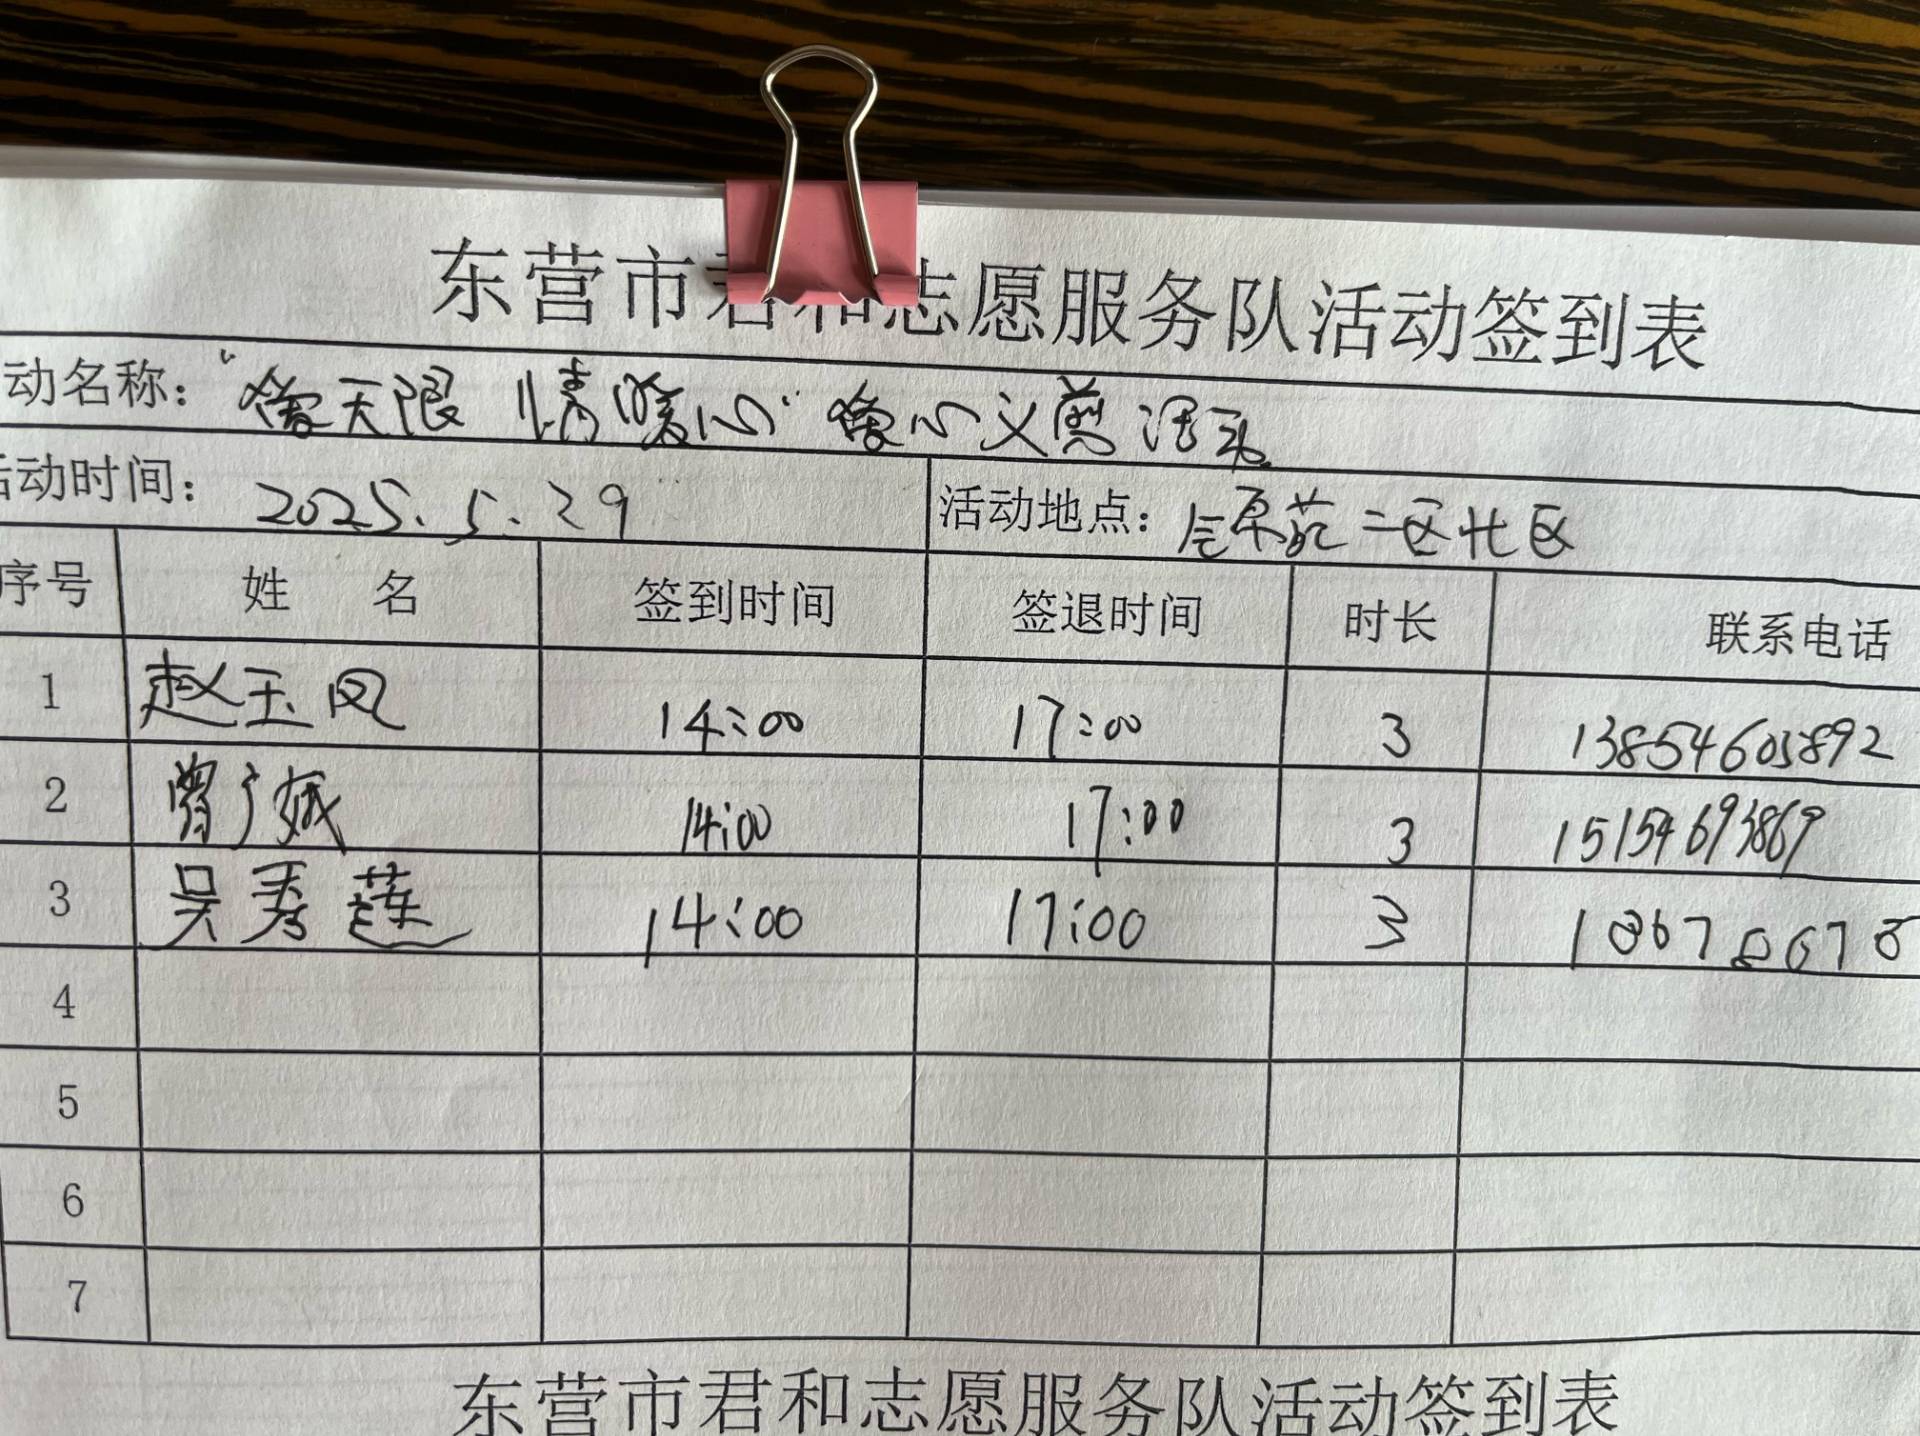 东营市君和志愿服务队活动签到表
动名称：“爱无限 情暖心”爱心义剪活动
活动时间：2025.5.29 活动地点：苑二区北区
序号 姓 名 签到时间 签退时间 时长 联系电话
1 赵玉凤 14:00 17:00 3 13854603892
2 曾广娥 14:00 17:00 3 15154693869
3 吴秀莲 14:00 17:00 3
4
5
6
7
东营市君和志愿服务队活动签到表